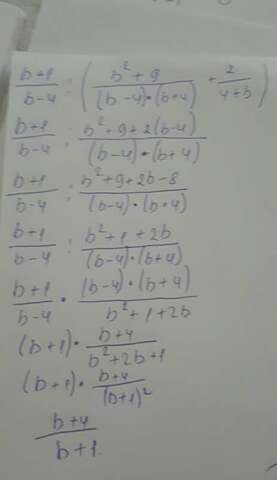 (b+1)/(b-4) : ((b²+9)/((b-4)•(b+4)) + 2/(4+b))
(b+1)/(b-4) : (b²+9+2(b-4))/((b-4)•(b+4))
(b+1)/(b-4) : (b²+9+2b-8)/((b-4)•(b+4))
(b+1)/(b-4) : (b²+1+2b)/((b-4)•(b+4))
(b+1)/(b-4) • ((b-4)•(b+4))/(b²+1+2b)
(b+1)• (b+4)/(b²+2b+1)
(b+1)• (b+4)/(b+1)²
(b+4)/(b+1)